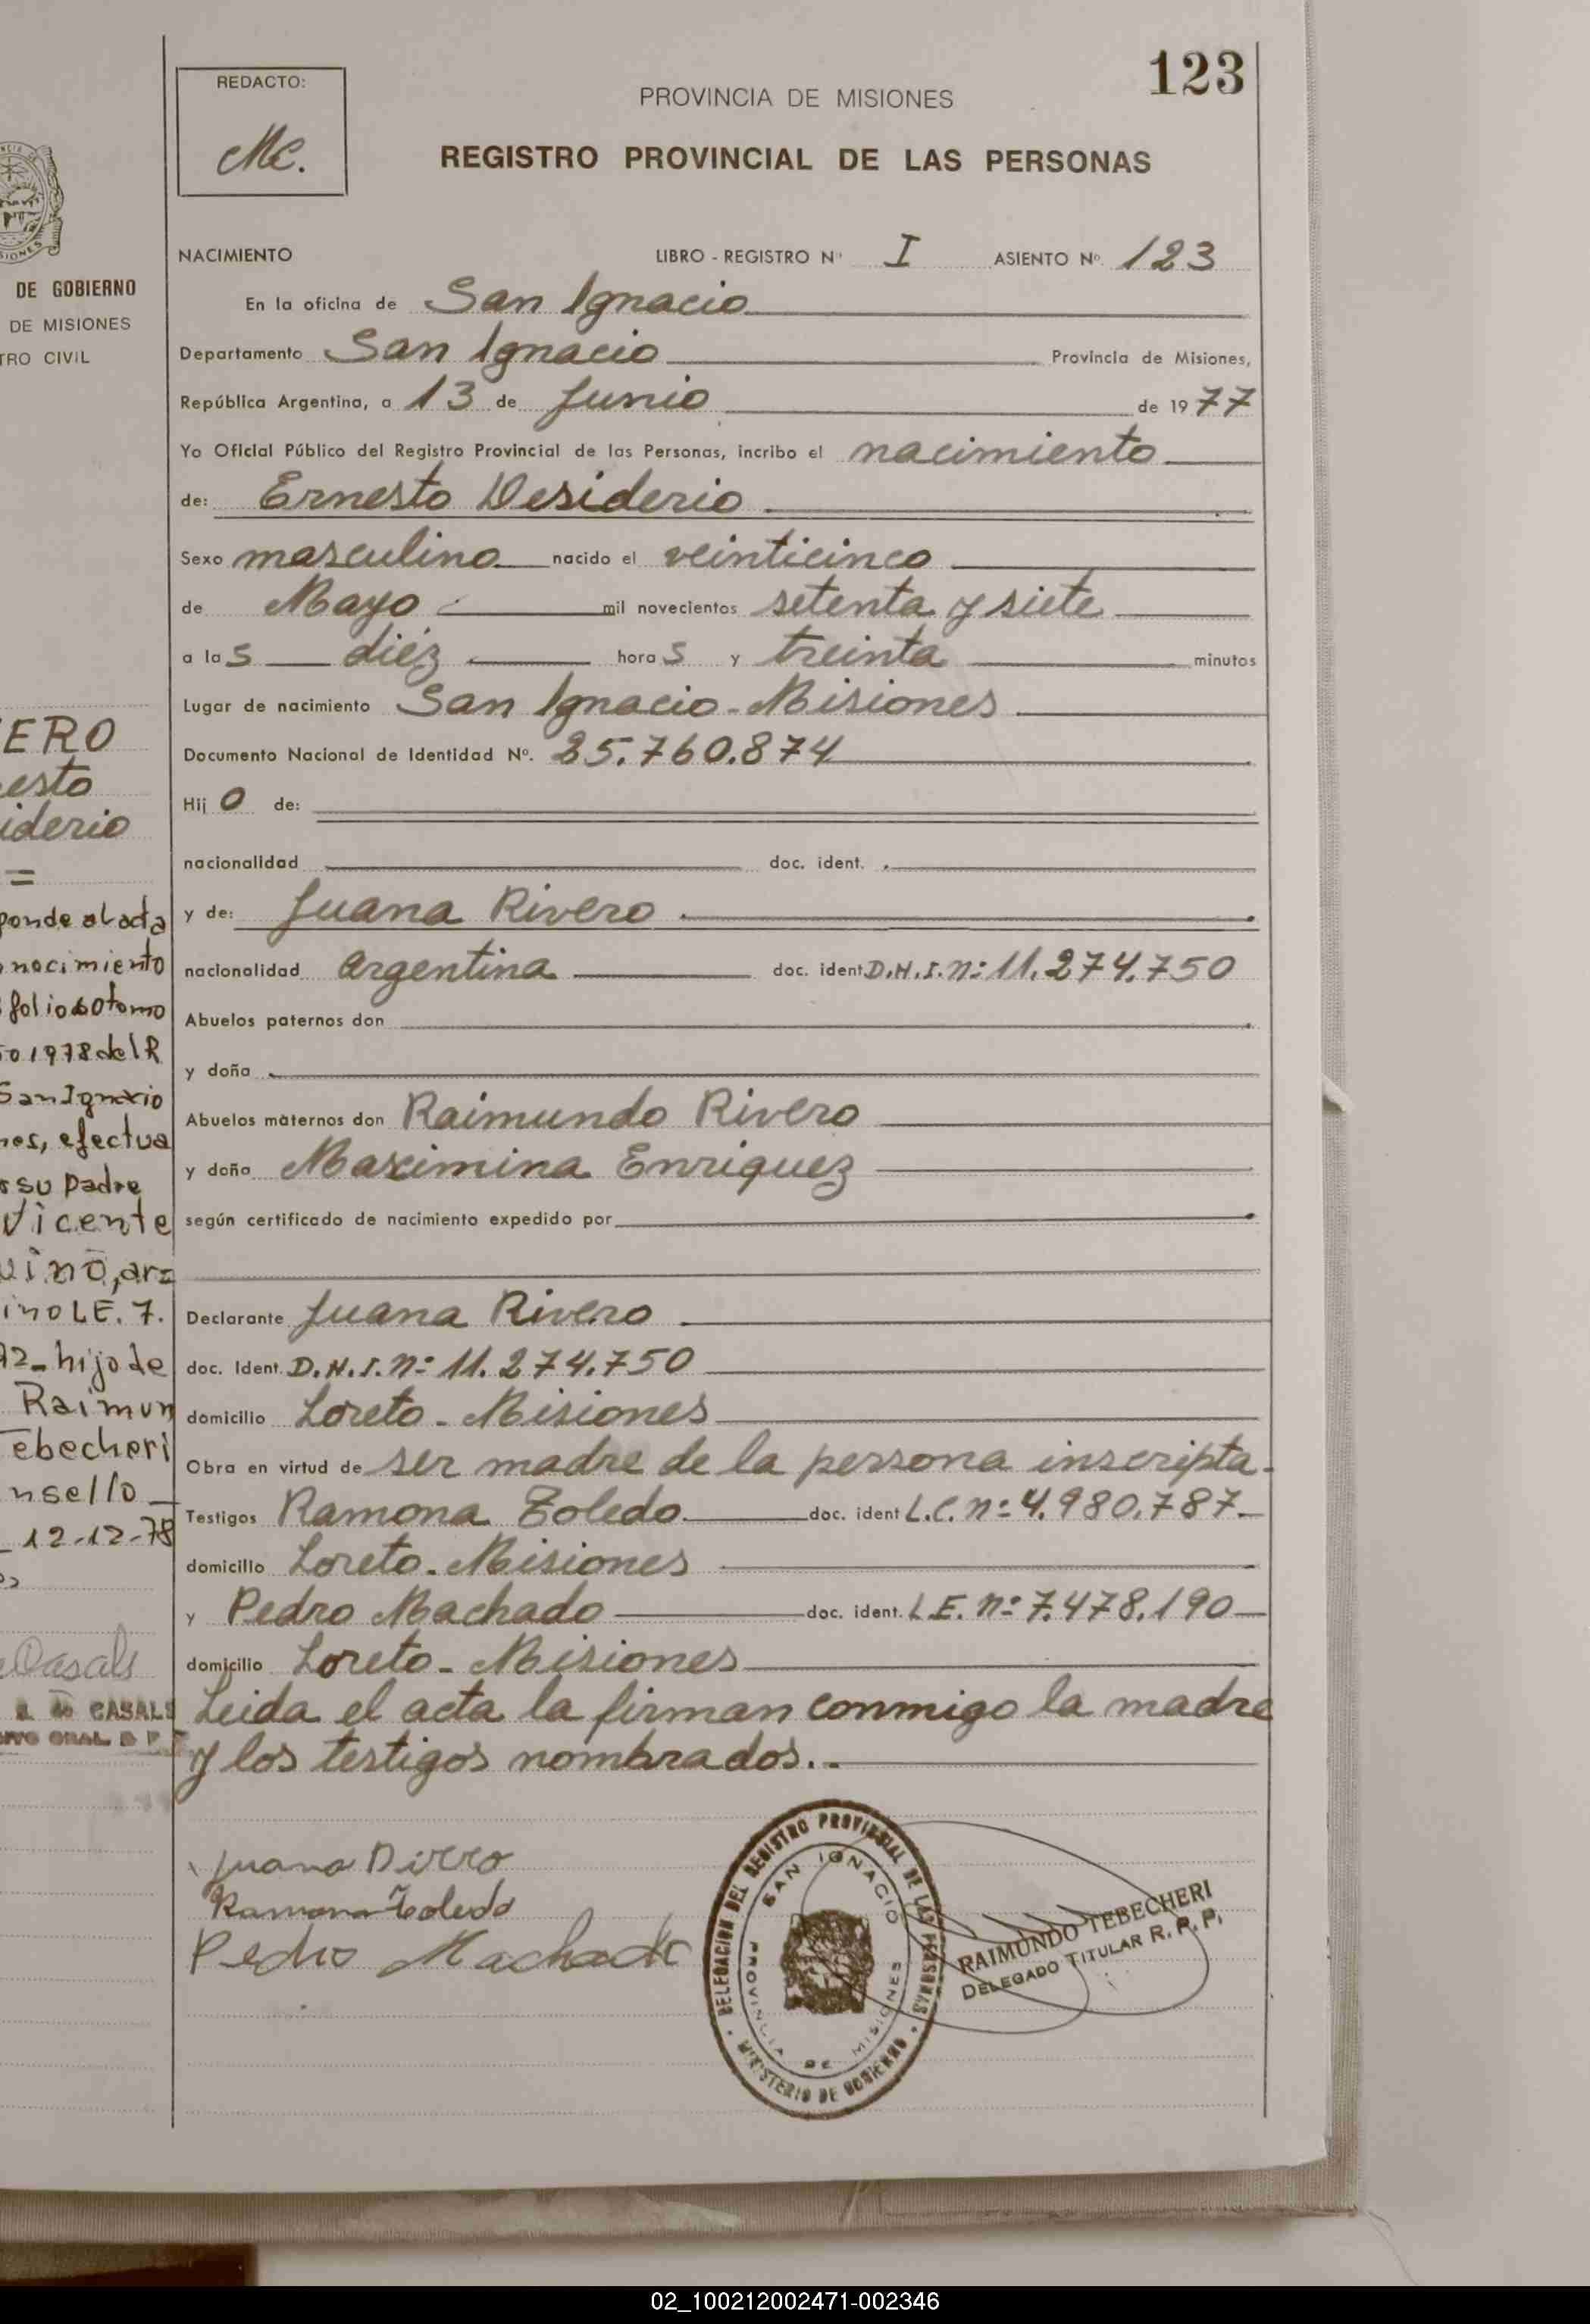 123
REDACTO:
Mc.
PROVINCIA DE MISIONES
REGISTRO PROVINCIAL DE LAS PERSONAS
NACIMIENTO LIBRO - REGISTRO Nº I ASIENTO Nº. 123
En la oficina de San Ignacio
Departamento San Ignacio Provincia de Misiones,
República Argentina, a 13 de Junio de 1977
Yo Oficial Público del Registro Provincial de las Personas, incribo el nacimiento
de: Ernesto Desiderio
Sexo masculino nacido el veinticinco
de Mayo mil novecientos setenta y siete
a las diéz horas y treinta minutos
Lugar de nacimiento San Ignacio - Misiones
Documento Nacional de Identidad Nº. 25.760.874
Hijo de:
nacionalidad doc. ident.
y de: Juana Rivero
nacionalidad argentina doc. ident D.N.I. nº 11.274.750
Abuelos paternos don
y doña
Abuelos maternos don Raimundo Rivero
y doña Maximina Enriquez
según certificado de nacimiento expedido por
Declarante Juana Rivero
doc. Ident. D.N.I. nº 11.274.750
domicilio Loreto - Misiones
Obra en virtud de ser madre de la persona inscripta.
Testigos Ramona Toledo doc. ident L.C. nº 4.980.787
domicilio Loreto - Misiones
y Pedro Machado doc. ident. L.E. nº 7.478.190
domicilio Loreto - Misiones
Leida el acta la firman conmigo la madre
y los testigos nombrados..
Juana
Ramona Toledo
Pedro Machado
DELEGACION DEL REGISTRO PROVINCIAL DE LAS PERSONAS
MINISTERIO DE GOBIERNO
SAN IGNACIO
PROVINCIA DE MISIONES
RAIMUNDO TEBECHERI
DELEGADO TITULAR R. P. P.
DE GOBIERNO
DE MISIONES
TRO CIVIL
ERO
esto
iderio
=
ponde al acta
nocimiento
folio 60 tomo
1978 del R
San Ignacio
nes, efectua
su padre
Vicente
vino, ar=
ino L.E. 7.
92 - hijo de
Raimun
Tebecheri
nsello
12-12-78
Casals
CASALS
02_100212002471-002346